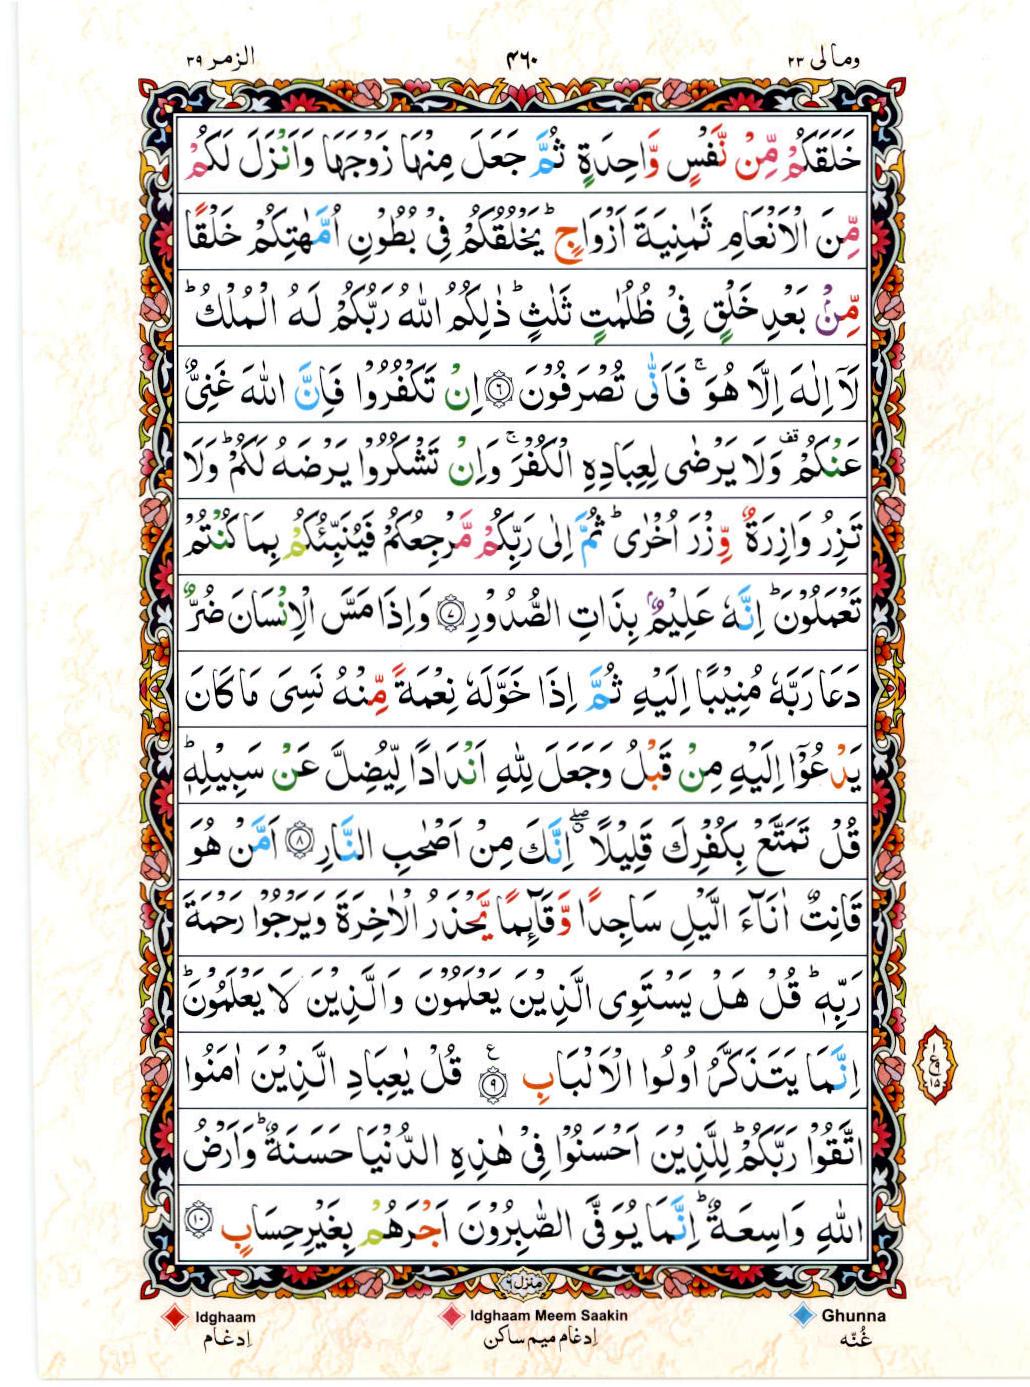 الزمر ٣٩
٤٦٠
ومالی ٢٣
خَلَقَكُمْ مِّنْ نَّفْسٍ وَّاحِدَةٍ ثُمَّ جَعَلَ مِنْهَا زَوْجَهَا وَاَنْزَلَ لَكُمْ
مِّنَ الْاَنْعَامِ ثَمٰنِيَةَ اَزْوَاجٍ ؕ يَخْلُقُكُمْ فِیْ بُطُوْنِ اُمَّهٰتِكُمْ خَلْقًا
مِّنْۢ بَعْدِ خَلْقٍ فِیْ ظُلُمٰتٍ ثَلٰثٍ ؕ ذٰلِكُمُ اللّٰهُ رَبُّكُمْ لَهُ الْمُلْكُ ؕ
لَاۤ اِلٰهَ اِلَّا هُوَ ۚ فَاَنّٰی تُصْرَفُوْنَ ۝٦ اِنْ تَكْفُرُوْا فَاِنَّ اللّٰهَ غَنِیٌّ
عَنْكُمْ ۫ وَلَا يَرْضٰی لِعِبَادِهِ الْكُفْرَ ۚ وَاِنْ تَشْكُرُوْا يَرْضَهُ لَكُمْ ؕ وَلَا
تَزِرُ وَازِرَةٌ وِّزْرَ اُخْرٰی ؕ ثُمَّ اِلٰی رَبِّكُمْ مَّرْجِعُكُمْ فَيُنَبِّئُكُمْ بِمَا كُنْتُمْ
تَعْمَلُوْنَ ؕ اِنَّهٗ عَلِيْمٌۢ بِذَاتِ الصُّدُوْرِ ۝٧ وَاِذَا مَسَّ الْاِنْسَانَ ضُرٌّ
دَعَا رَبَّهٗ مُنِيْبًا اِلَيْهِ ثُمَّ اِذَا خَوَّلَهٗ نِعْمَةً مِّنْهُ نَسِیَ مَا كَانَ
يَدْعُوْۤا اِلَيْهِ مِنْ قَبْلُ وَجَعَلَ لِلّٰهِ اَنْدَادًا لِّيُضِلَّ عَنْ سَبِيْلِهٖ ؕ
قُلْ تَمَتَّعْ بِكُفْرِكَ قَلِيْلًا ۖ اِنَّكَ مِنْ اَصْحٰبِ النَّارِ ۝٨ اَمَّنْ هُوَ
قَانِتٌ اٰنَآءَ الَّيْلِ سَاجِدًا وَّقَآئِمًا يَّحْذَرُ الْاٰخِرَةَ وَيَرْجُوْا رَحْمَةَ
رَبِّهٖ ؕ قُلْ هَلْ يَسْتَوِی الَّذِيْنَ يَعْلَمُوْنَ وَالَّذِيْنَ لَا يَعْلَمُوْنَ ؕ
اِنَّمَا يَتَذَكَّرُ اُولُوا الْاَلْبَابِ ۝٩ ع قُلْ يٰعِبَادِ الَّذِيْنَ اٰمَنُوا
١ ع ٩ ١٥
اتَّقُوْا رَبَّكُمْ ؕ لِلَّذِيْنَ اَحْسَنُوْا فِیْ هٰذِهِ الدُّنْيَا حَسَنَةٌ ؕ وَاَرْضُ
اللّٰهِ وَاسِعَةٌ ؕ اِنَّمَا يُوَفَّی الصّٰبِرُوْنَ اَجْرَهُمْ بِغَيْرِ حِسَابٍ ۝١٠
منزل ٦
Idghaam
Idghaam Meem Saakin
Ghunna
اِدغام
اِدغام میم ساکن
غُنّه